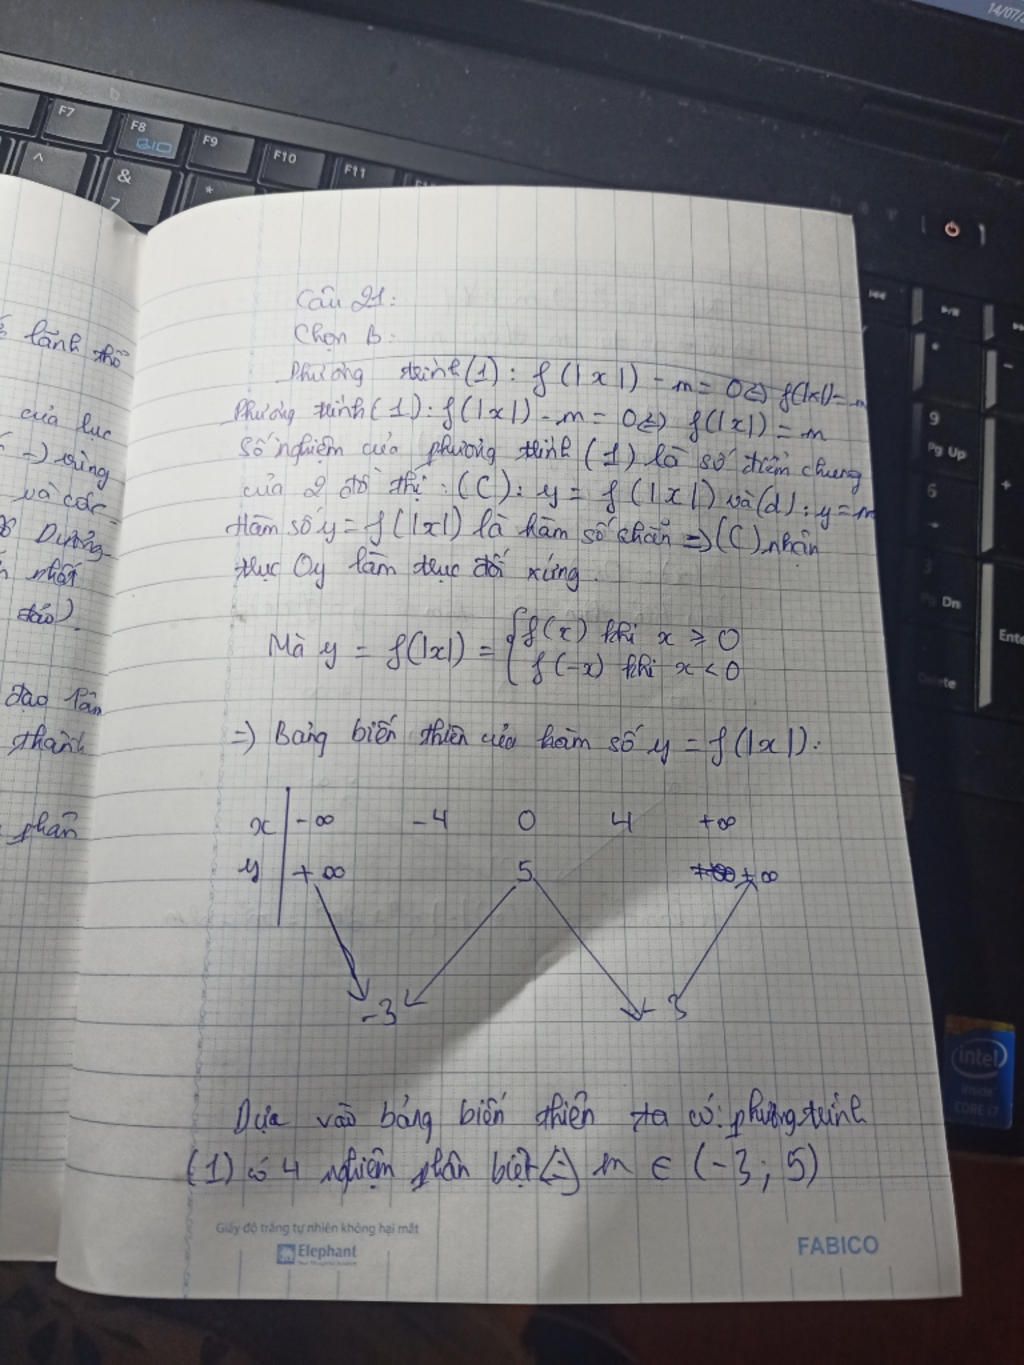 14/07/
F7
F8
F9
F10
F11
^
&
7
*
9
Pg Up
6
3
Pg Dn
Enter
Delete
*
-
+
lãnh thổ
của lục
-) vùng
và các
Dương
nhất
đảo).
đạo lân
thành
phần
Câu 21:
Chọn B:
Phương trình (1): f(|x|) - m = 0 <=> f(|x|) = m
Phương trình (1): f(|x|) - m = 0 <=> f(|x|) = m
Số nghiệm của phương trình (1) là số điểm chung
của 2 đồ thị: (C): y = f(|x|) và (d): y = m
Hàm số y = f(|x|) là hàm số chẵn => (C) nhận
trục Oy làm trục đối xứng.
Mà y = f(|x|) = { f(x) khi x ≥ 0
f(-x) khi x < 0
=) Bảng biến thiên của hàm số y = f(|x|).
x | -∞ -4 0 4 +∞
y | +∞ 5 +∞
-3 -3
Dựa vào bảng biến thiên ta có: phương trình
(1) có 4 nghiệm phân biệt (=) m ∈ (-3; 5)
Giấy độ trắng tự nhiên không hại mắt
Elephant
FABICO
intel
inside
CORE i7